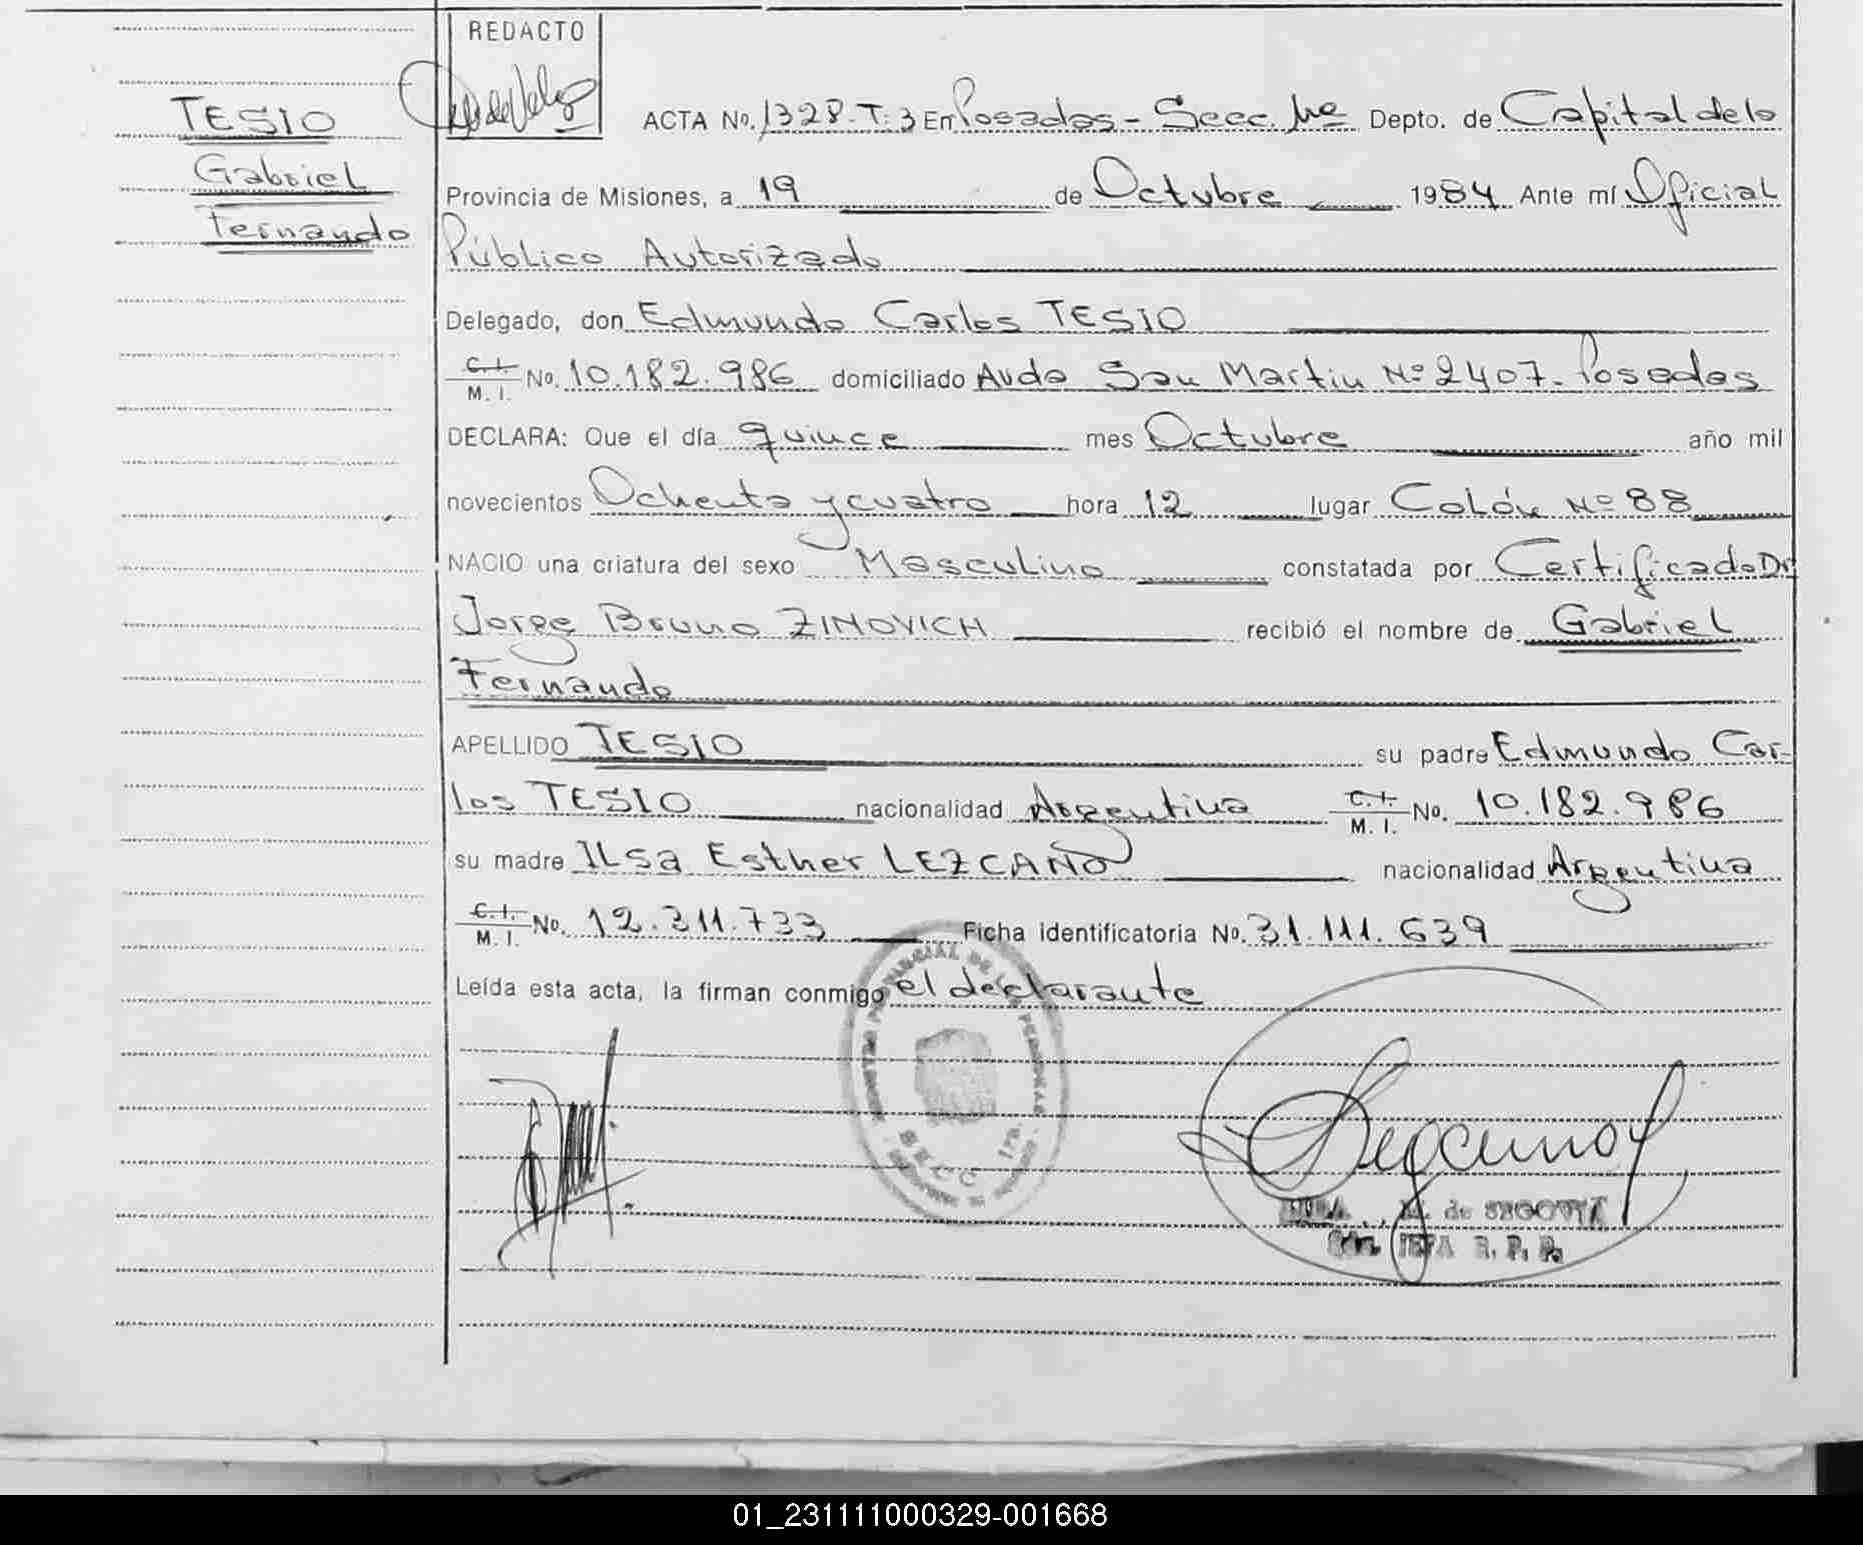 REDACTO
TESIO
Gabriel
Fernando
ACTA No. 1328-T:3 En Posadas - Secc. 1ra Depto. de Capital de la
Provincia de Misiones, a 19 de Octubre 1984 Ante mí Oficial
Público Autorizado
Delegado, don Edmundo Carlos TESIO
C.I. / M. I. No. 10.182.986 domiciliado Avda San Martin Nº 2407. Posadas
DECLARA: Que el día quince mes Octubre año mil
novecientos Ochenta y cuatro hora 12 lugar Colón Nº 88
NACIO una criatura del sexo Masculino constatada por Certificado Dr
Jorge Bruno ZINOVICH recibió el nombre de Gabriel
Fernando
APELLIDO TESIO su padre Edmundo Car-
los TESIO nacionalidad Argentina C.I. / M. I. No. 10.182.986
su madre ILsa Esther LEZCANO nacionalidad Argentina
C.I. / M. I. No. 12.311.733 Ficha identificatoria No. 31.111.639
Leída esta acta, la firman conmigo el declarante
REGISTRO PROVINCIAL DE LAS PERSONAS
SECC. 1ra.
M. de SEGOVIA
JEFA R. P. P.
01_231111000329-001668